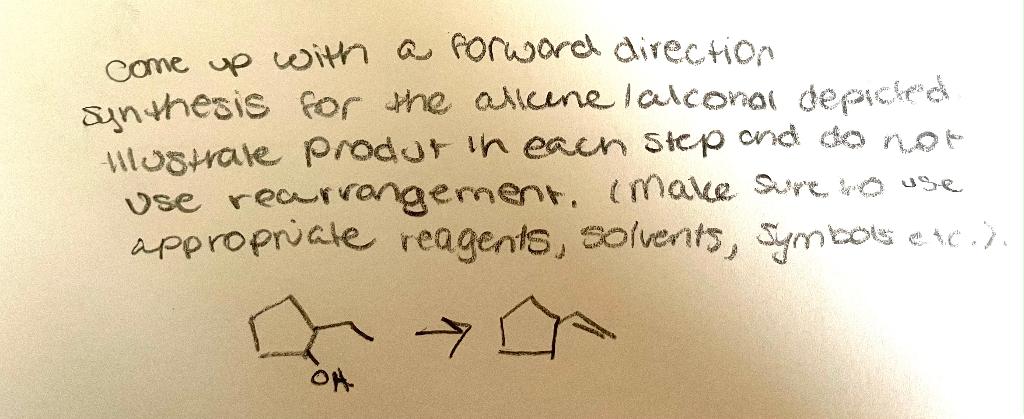 Come up with a forward direction
synthesis for the alkene/alcohol depicted.
Illustrate produt in each step and do not
use rearrangement. (Make sure to use
appropriate reagents, solvents, symbols etc.).
OH